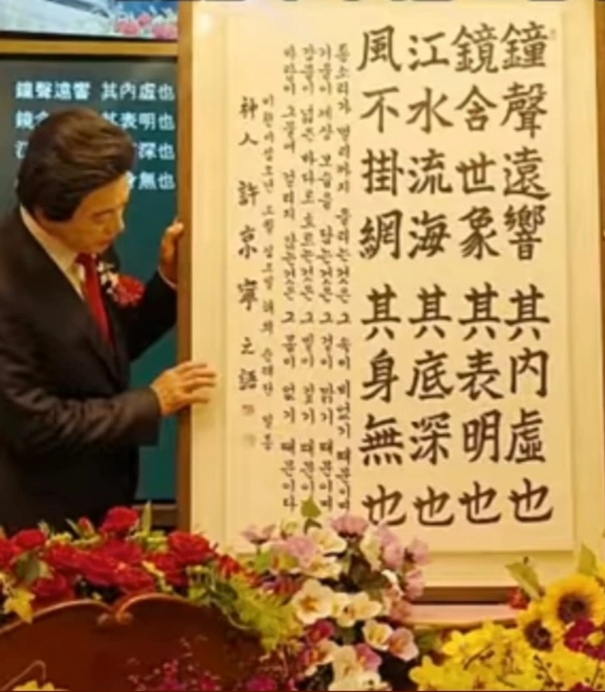 鐘聲遠響 其內虛也
鏡 表明也
深也
無也
鐘聲遠響 其內虛也
鏡含世象 其表明也
江水流海 其底深也
風不掛網 其身無也
종소리가 멀리까지 울리는것은 그 속이 비었기 때문이며
거울이 세상 모습을 담는것은 그 겉이 맑기 때문이며
강물이 넓은 바다로 흐르는것은 그 밑이 깊기 때문이며
바람이 그물에 걸리지 않는것은 그 몸이 없기 때문이다
神人 許京寧 之語